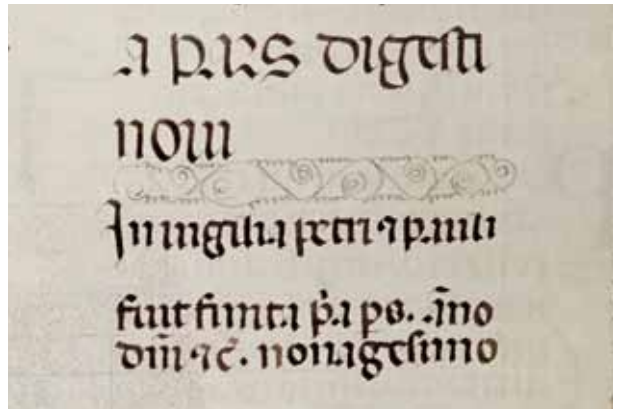 A PARS digesti
noui
In uigilia petri ⁊ pauli
fuit finita pͥa ps. Āno
dn̄i ⁊c̄. nonagesimo